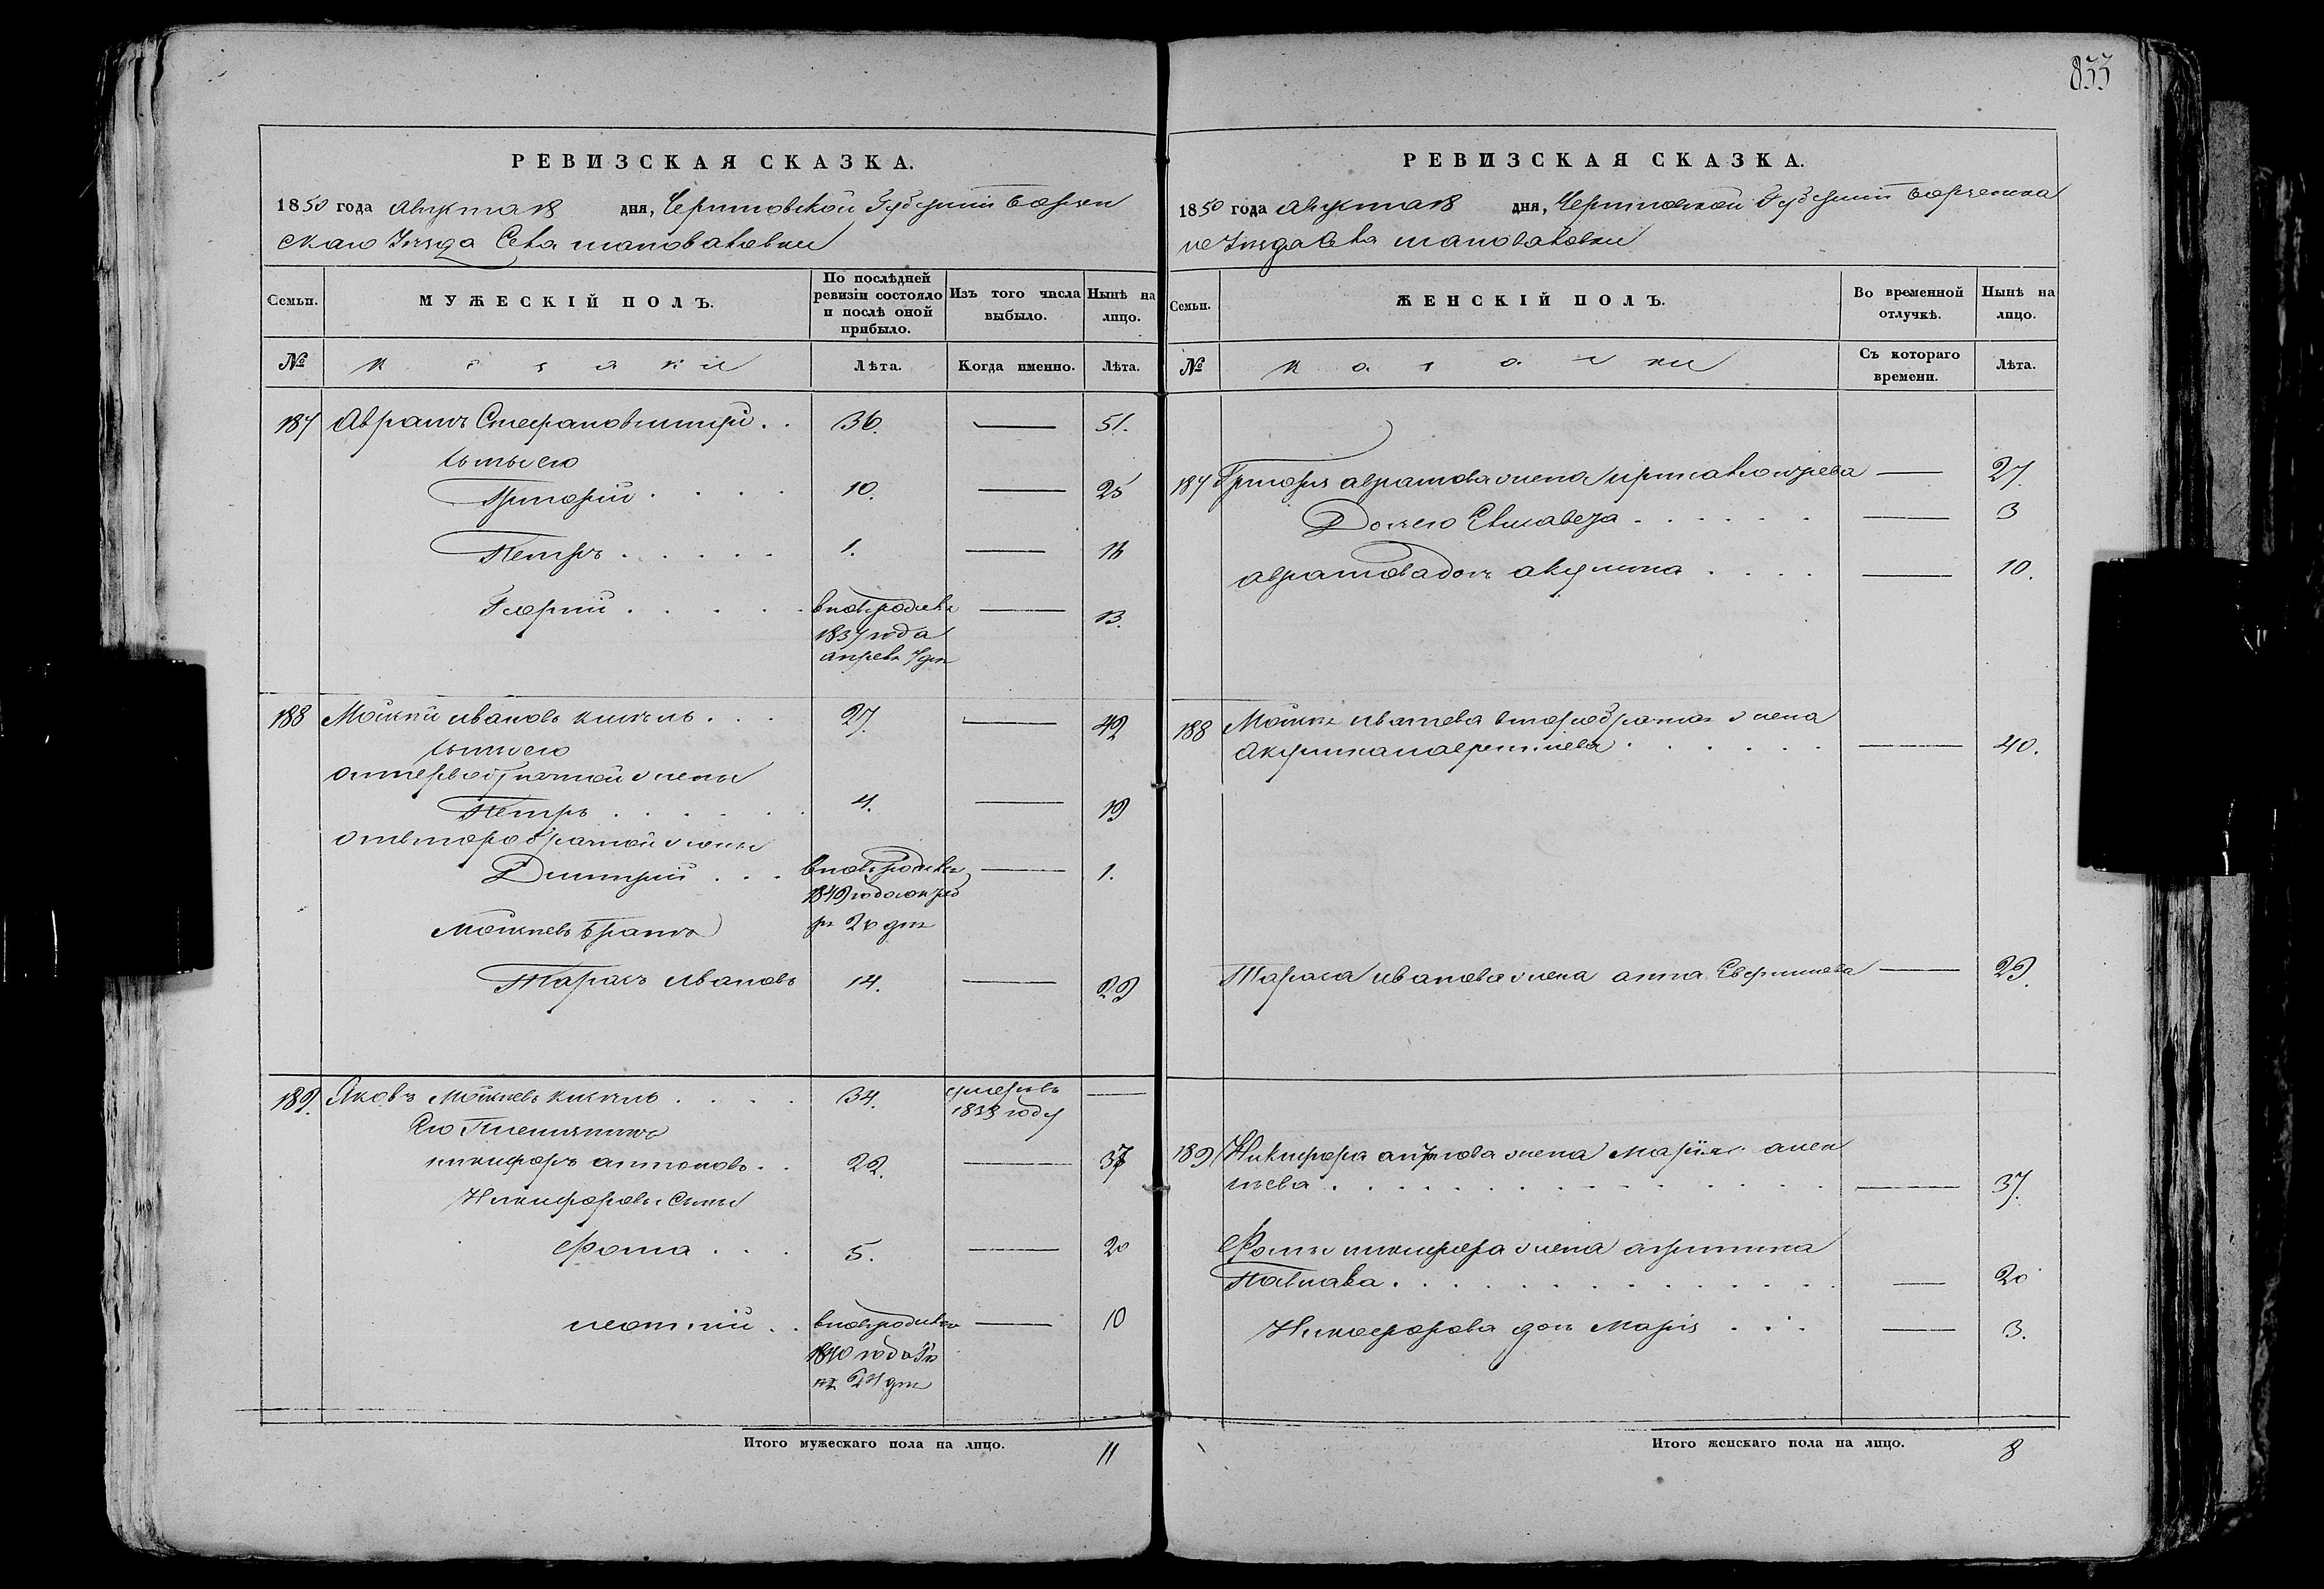 833
РЕВИЗСКАЯ СКАЗКА.
1850 года августа 18 дня, Черниговской Губерніи Борзен
скаго Уезда Села Шаповаловки
Семьи.
МУЖЕСКІЙ ПОЛЪ.
По послѣдней ревизіи состояло и послѣ оной прибыло.
Изъ того числа выбыло.
Нынѣ на лицо.
№
казаки
Лѣта.
Когда именно.
Лѣта.
187 Аврамъ Стефановъ 36. 51.
сыны его
Григорій 10. 25
Петръ 1. 16
Георгій вновь родився 13.
1837 года
апреля 7 дня
188 Мойсей Ивановъ 27. 42
сыны его
от первобрачной жены
Петръ 4. 19
от второбрачной жены
Дмитрій вновь родився 1.
1849 года октяб
ря 26 дня
Мойсеевъ братъ
Тарасъ Ивановъ 14. 29
189. Яковъ Мойсеевъ 34. умеръ въ
1838 году
Его Племянникъ
Никифоръ Антоновъ 22. 37
Никифоровы Сыны
Фома 5. 20
Леонтій вновь родився 10
1840 года
24 дня
Итого мужескаго пола на лицо. 11
РЕВИЗСКАЯ СКАЗКА.
1850 года августа 18 дня, Черниговской Губерніи Борзенска
го Уезда Села Шаповаловки
Семьи.
ЖЕНСКІЙ ПОЛЪ.
Во временной отлучкѣ.
Нынѣ на лицо.
№
казачки
Съ котораго времени.
Лѣта.
187 Григорія Аврамова жена 27.
Дочь его Елисавета 3
Аврамова дочь Акулина 10.
188 Мойсея Иванова второбрачная жена
Акулина 40.
Тараса Иванова жена Анна Евфимова 29.
189 Никифора Антонова жена Марія Алек
сѣева 37.
Фомы Никифора жена
Павлова 20
Никифорова дочь Марія 3.
Итого женскаго пола на лицо. 8